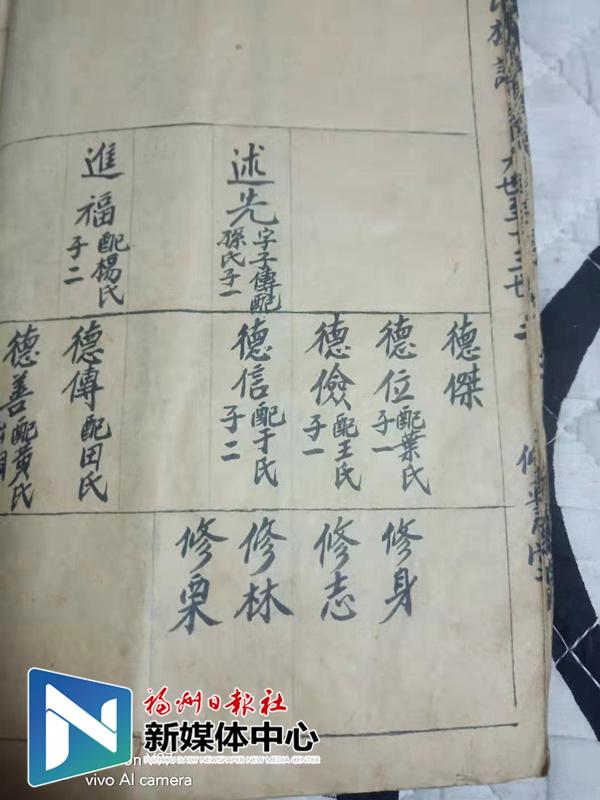 述先 字子傳配孫氏子一
進福 配楊氏子二
德傑
德位 配葉氏子一
德儉 配王氏子一
德信 配于氏子二
德傳 配田氏
德善 配黃氏
修身
修志
修林
修栗
福州日报社
新媒体中心
FUZHOU DAILY NEWSPAPER NEW MEDIA CENTER
vivo AI camera